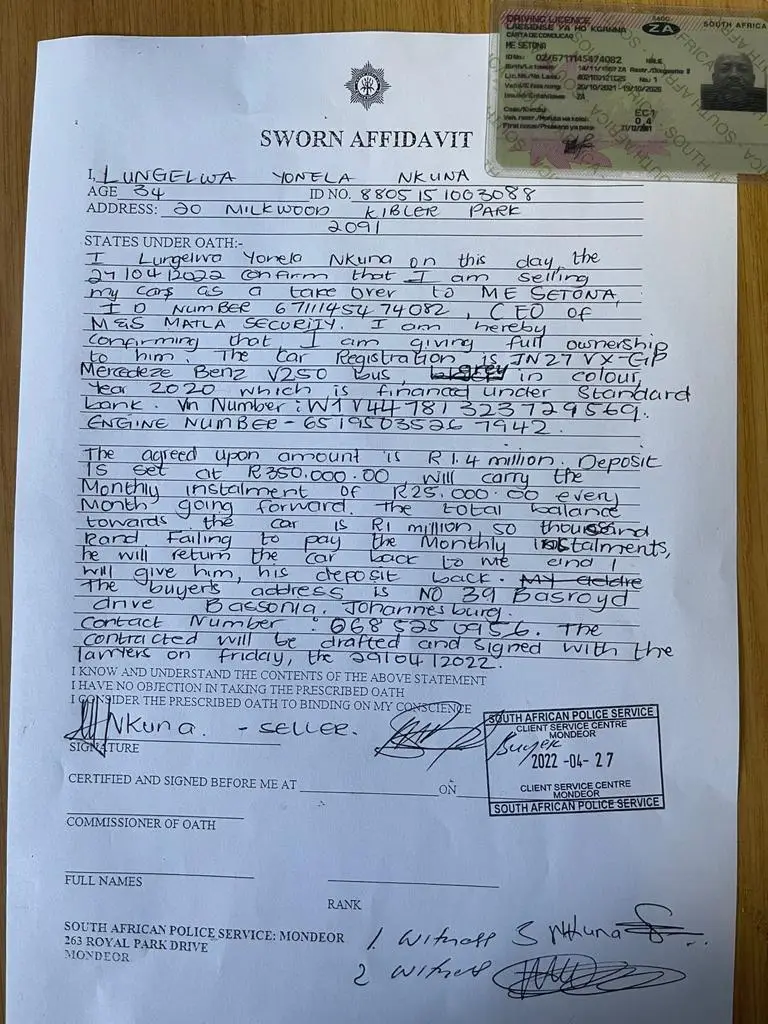 DRIVING LICENCE
ZA
SOUTH AFRICA
CARTA DE CONDUCAO
ME SETONA
02/6711145474082
MALE
EC1
SWORN AFFIDAVIT
I, LUNGELWA YONELA NKUNA
AGE 34 ID NO. 8805151003088
ADDRESS: 20 MILKWOOD KIBLER PARK
2091
STATES UNDER OATH:-
I Lungelwa Yonela Nkuna on this day, the
27/04/2022 confirm that I am selling
my cars as a take over to ME SETONA,
ID NUMBER 6711145474082, CEO of
M&S MATLA SECURITY. I am hereby
confirming that I am giving full ownership
to him. The car Registration is JN27 VX-GP
Mercedeze Benz V250 bus, grey in colour,
Year 2020 which is financed under Standard
bank. Vin Number: W1V44781323729569.
ENGINE NUMBER - 65195035267942.
The agreed upon amount is R1.4 million. Deposit
is set at R350.000.00 will carry the
Monthly instalment of R25.000.00 every
Month going forward. The total balance
towards the car is R1 million, 50 thousand
Rand. Failing to pay the Monthly instalments,
he will return the car back to me and I
will give him, his deposit back. My addre
The buyers address is NO 39 Basroyd
drive Bassonia, Johannesburg.
Contact Number : 068 525 0956. The
contracted will be drafted and signed with the
lawyers on friday, the 29/04/2022.
I KNOW AND UNDERSTAND THE CONTENTS OF THE ABOVE STATEMENT
I HAVE NO OBJECTION IN TAKING THE PRESCRIBED OATH
I CONSIDER THE PRESCRIBED OATH TO BINDING ON MY CONSCIENCE
Nkuna - SELLER.
SIGNATURE
SOUTH AFRICAN POLICE SERVICE
CLIENT SERVICE CENTRE
MONDEOR
Buyer
2022 -04- 27
CLIENT SERVICE CENTRE
MONDEOR
SOUTH AFRICAN POLICE SERVICE
CERTIFIED AND SIGNED BEFORE ME AT ON
COMMISSIONER OF OATH
FULL NAMES
RANK
SOUTH AFRICAN POLICE SERVICE: MONDEOR
263 ROYAL PARK DRIVE
MONDEOR
1 Witness S Nkuna
2 Witness